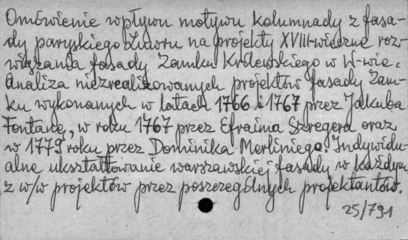 Omówienie wpływu motywu kolumnady z fasa-
dy paryskiego Luwru na projekty XVIII-wieczne roz-
wiązania fasady Zamku Królewskiego w W-wie.
Analiza niezrealizowanych projektów fasady Zam-
ku wykonanych w latach 1766 i 1767 przez Jakuba
Fontanę, w roku 1767 przez Efraima Szregera oraz
w 1779 roku przez Dominika Merliniego. Indywidu-
alne ukształtowanie warszawskiej fasady w każdym
z w/w projektów przez poszczególnych projektantów.
25/791